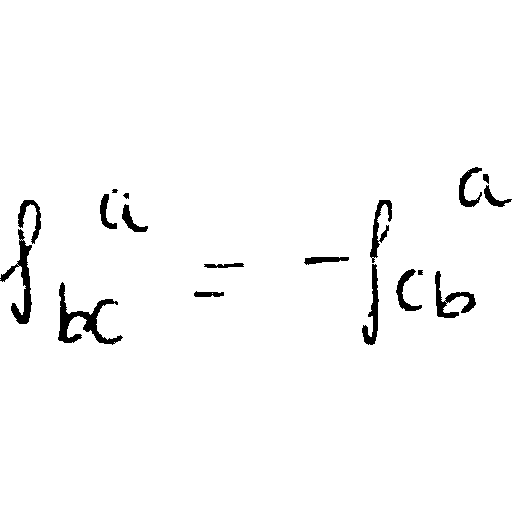 f_{bc}^{a} = -f_{cb}^{a}